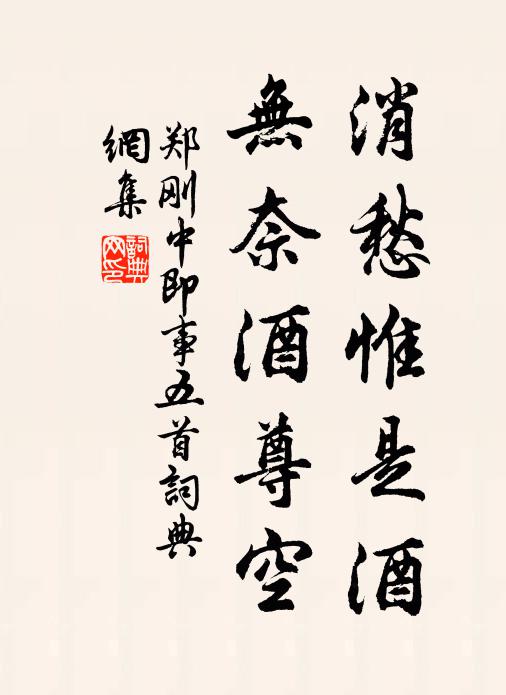 消愁惟是酒
無奈酒尊空
郑刚中即事五首詞典
網集
詞典
网印